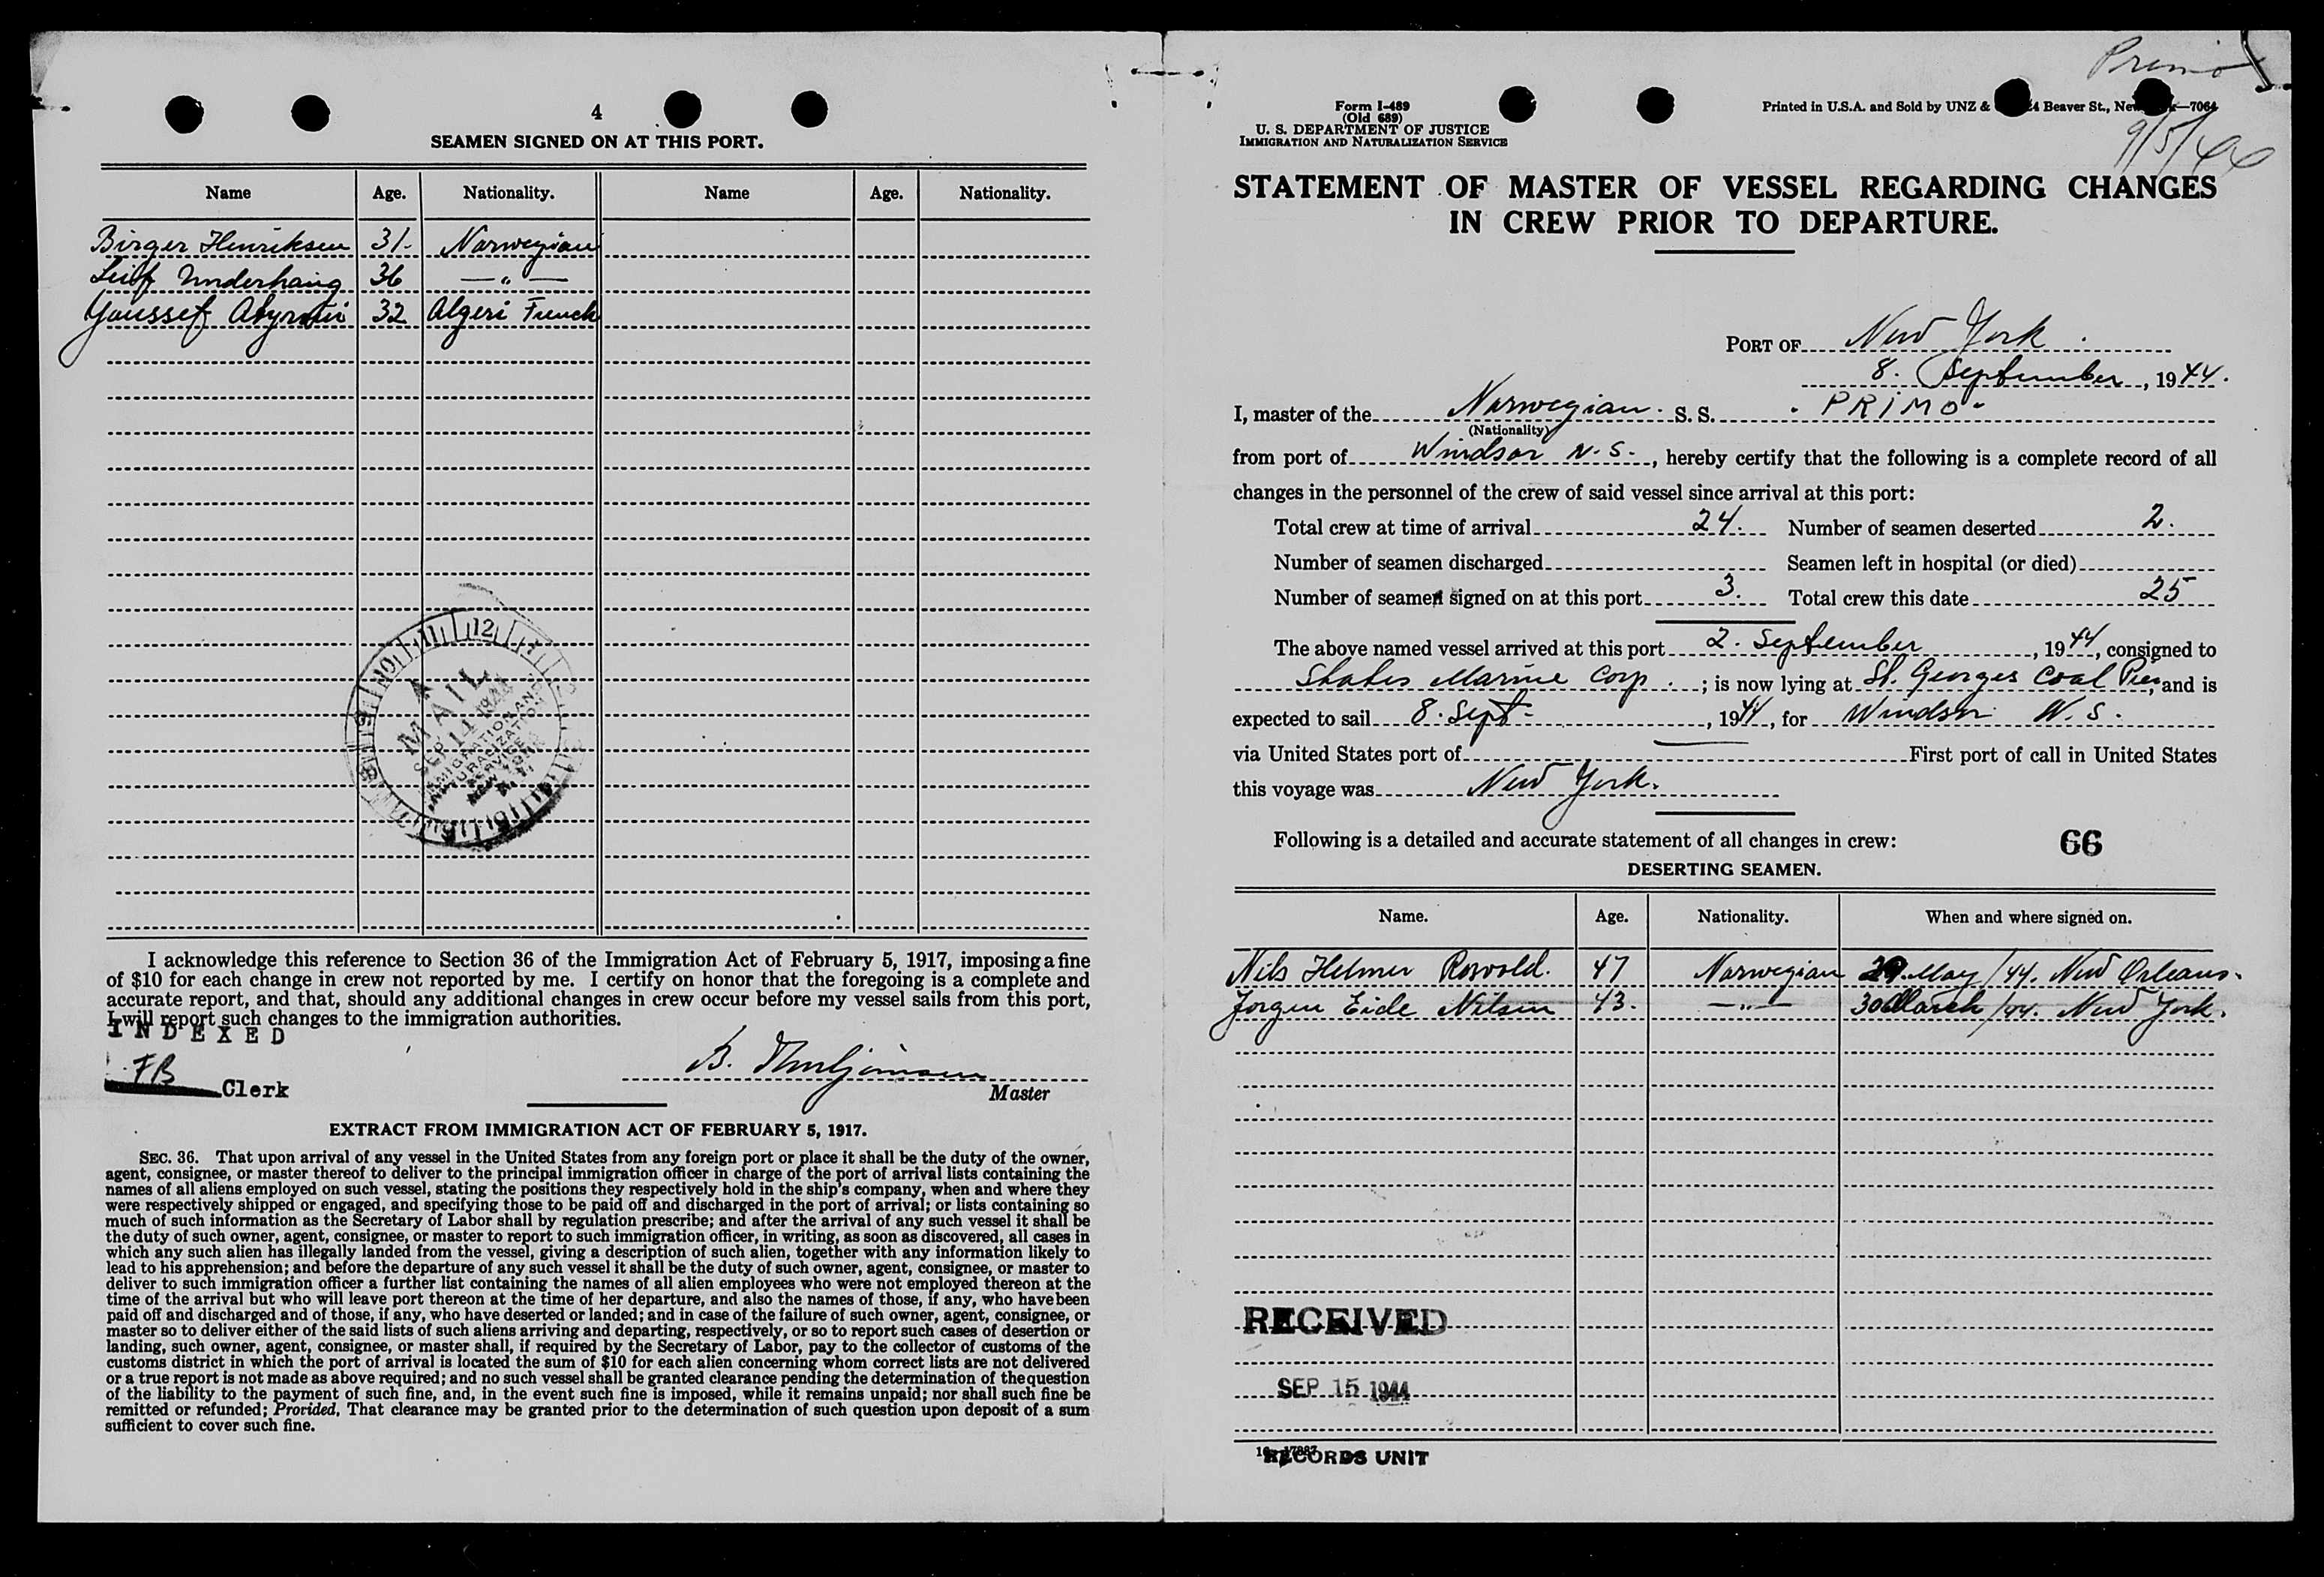 4
SEAMEN SIGNED ON AT THIS PORT.
Name Age. Nationality. Name Age. Nationality.
Birger Henriksen 31. Norwegian
Leif Underhaug 36 —〃—
Youssef 32 Algeri French
A
MAIL
SEP 14 1944
IMMIGRATION AND
NATURALIZATION
SERVICE
NEW YORK
N.Y.
I acknowledge this reference to Section 36 of the Immigration Act of February 5, 1917, imposing a fine
of $10 for each change in crew not reported by me. I certify on honor that the foregoing is a complete and
accurate report, and that, should any additional changes in crew occur before my vessel sails from this port,
I will report such changes to the immigration authorities.
INDEXED
FB Clerk
B.
Master
EXTRACT FROM IMMIGRATION ACT OF FEBRUARY 5, 1917.
SEC. 36. That upon arrival of any vessel in the United States from any foreign port or place it shall be the duty of the owner,
agent, consignee, or master thereof to deliver to the principal immigration officer in charge of the port of arrival lists containing the
names of all aliens employed on such vessel, stating the positions they respectively hold in the ship's company, when and where they
were respectively shipped or engaged, and specifying those to be paid off and discharged in the port of arrival; or lists containing so
much of such information as the Secretary of Labor shall by regulation prescribe; and after the arrival of any such vessel it shall be
the duty of such owner, agent, consignee, or master to report to such immigration officer, in writing, as soon as discovered, all cases in
which any such alien has illegally landed from the vessel, giving a description of such alien, together with any information likely to
lead to his apprehension; and before the departure of any such vessel it shall be the duty of such owner, agent, consignee, or master to
deliver to such immigration officer a further list containing the names of all alien employees who were not employed thereon at the
time of the arrival but who will leave port thereon at the time of her departure, and also the names of those, if any, who have been
paid off and discharged and of those, if any, who have deserted or landed; and in case of the failure of such owner, agent, consignee, or
master so to deliver either of the said lists of such aliens arriving and departing, respectively, or so to report such cases of desertion or
landing, such owner, agent, consignee, or master shall, if required by the Secretary of Labor, pay to the collector of customs of the
customs district in which the port of arrival is located the sum of $10 for each alien concerning whom correct lists are not delivered
or a true report is not made as above required; and no such vessel shall be granted clearance pending the determination of the question
of the liability to the payment of such fine, and, in the event such fine is imposed, while it remains unpaid; nor shall such fine be
remitted or refunded; Provided, That clearance may be granted prior to the determination of such question upon deposit of a sum
sufficient to cover such fine.
Primo
9/5/44
Form I-489
(Old 689)
U. S. DEPARTMENT OF JUSTICE
IMMIGRATION AND NATURALIZATION SERVICE
Printed in U.S.A. and Sold by UNZ & 4 Beaver St., New —7064
STATEMENT OF MASTER OF VESSEL REGARDING CHANGES
IN CREW PRIOR TO DEPARTURE.
PORT OF New York
8. September, 1944.
I, master of the Norwegian S. S. PRIMO
(Nationality)
from port of Windsor N.S., hereby certify that the following is a complete record of all
changes in the personnel of the crew of said vessel since arrival at this port:
Total crew at time of arrival 24. Number of seamen deserted 2.
Number of seamen discharged Seamen left in hospital (or died)
Number of seamen signed on at this port 3. Total crew this date 25
The above named vessel arrived at this port 2. September, 1944, consigned to
States Marine Corp.; is now lying at St. Georges Coal Pier, and is
expected to sail 8. Sept., 1944, for Windsor N.S.
via United States port of First port of call in United States
this voyage was New York.
Following is a detailed and accurate statement of all changes in crew: 66
DESERTING SEAMEN.
Name. Age. Nationality. When and where signed on.
Nils Helmer Rosvold. 47 Norwegian 29. May/44. New Orleans.
Jorgen Eide Nilsen 43. —〃— 30 March/44. New York.
RECEIVED
SEP 15 1944
RECORDS UNIT